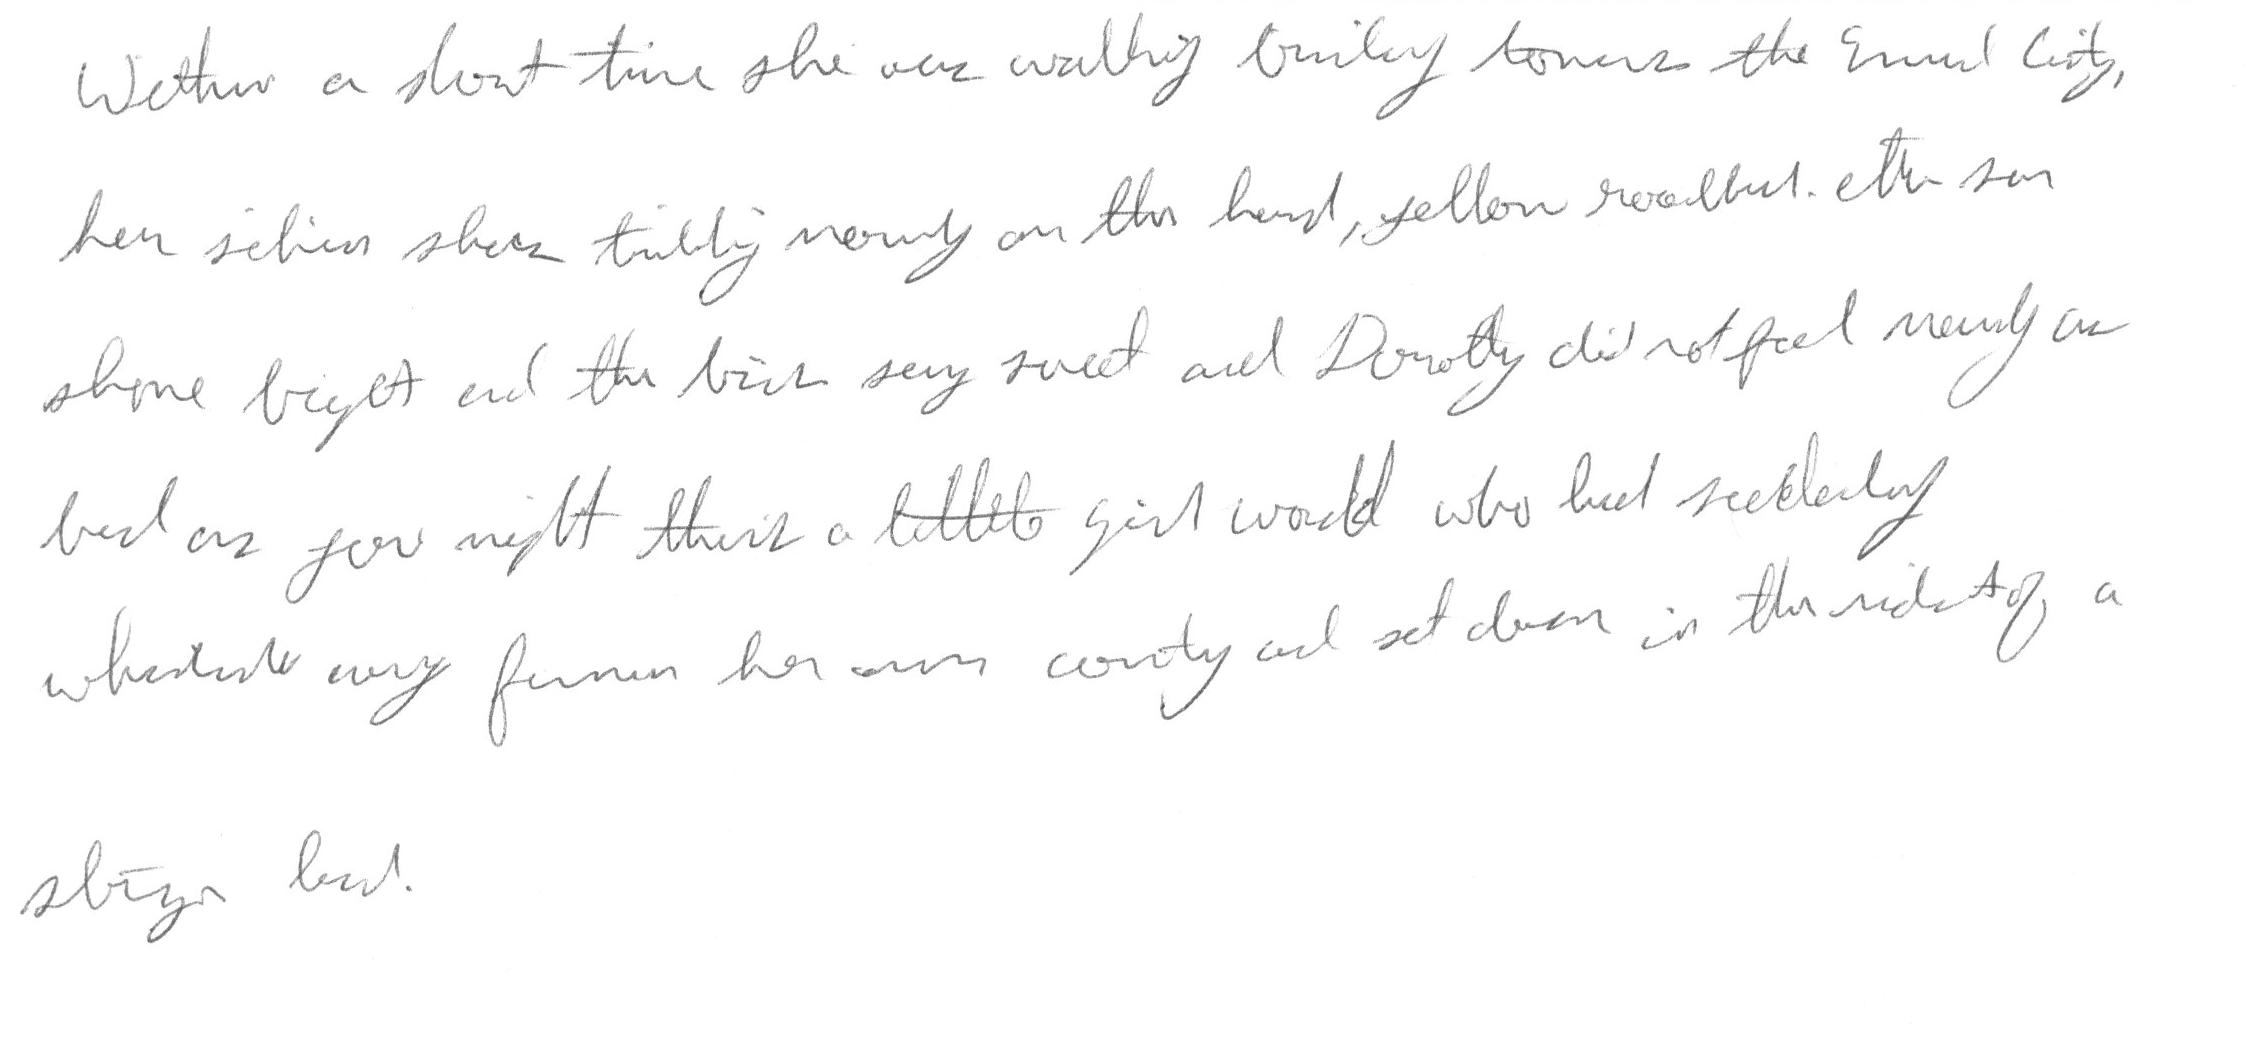 Within a short time she was walking briskly toward the Emerald City,
her silver shoes tinkling merrily on the hard, yellow roadbed. The sun
shone bright and the birds sang sweet and Dorothy did not feel nearly as
bad as you might think a little girl would who had suddenly
whisked away from her own country and set down in the midst of a
strange land.